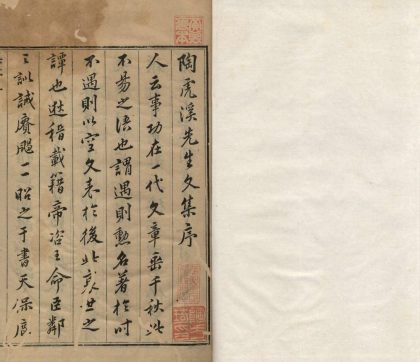 陶虎溪先生文集序
人云事功在一代文章垂千秋此
不易之语也謂遇則勲名著於時
不遇則以空文表於後此衰世之
譚也逖稽載籍帝咨王命臣鄰
之訓誡賡颺一一昭之于書天保